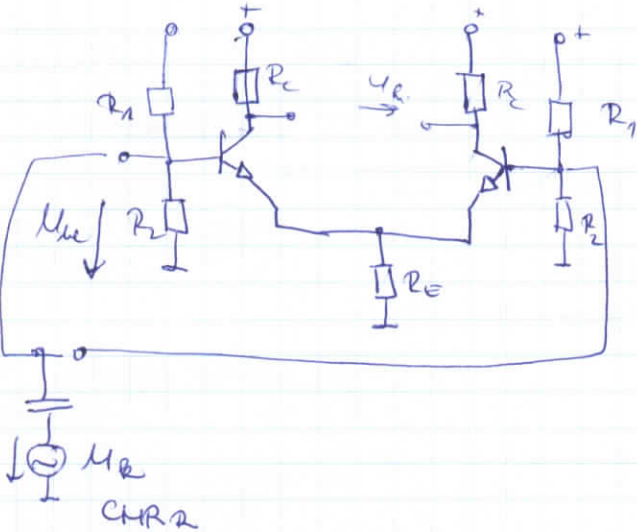 +
+
+
R₁
R_C
u_R
R_C
R₁
U_BE
R₂
R₂
R_E
U_R
CMRR